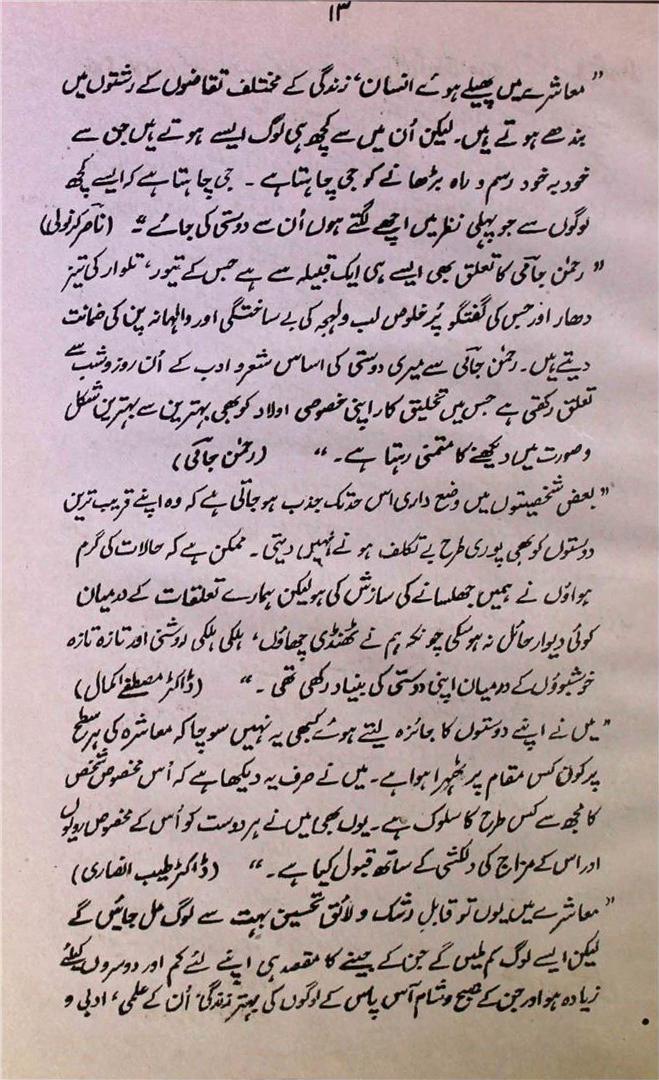 ۱۳
”معاشرے میں پھیلے ہوئے انسان، زندگی کے مختلف تقاضوں کے رشتوں میں
بندھے ہوتے ہیں۔ لیکن اُن میں سے کچھ ہی لوگ ایسے ہوتے ہیں جن سے
خود بہ خود رسم و راہ بڑھانے کو جی چاہتا ہے ۔ جی چاہتا ہے کہ ایسے کچھ
لوگوں سے جو پہلی نظر میں اچھے لگتے ہوں اُن سے دوستی کی جائے ۔“ (ناصر کرنولی)
”رحمٰن جامی کا تعلق بھی ایسے ہی ایک قبیلہ سے ہے جس کے تیور، تلوار کی تیز
دھار اور جس کی گفتگو پُر خلوص لب ولہجہ کی بے ساختگی اور والہانہ پن کی ضمانت
دیتے ہیں۔ رحمٰن جامی سے میری دوستی کی اساس شعر و ادب کے اُن روز و شب سے
تعلق رکھتی ہے جس میں تخلیق کار اپنی خصوصی اولاد کو بھی بہترین سے بہترین شکل
وصورت میں دیکھنے کا متمنی رہتا ہے ۔“ (رحمٰن جامی)
”بعض شخصیتوں میں وضع داری اس حد تک جذب ہو جاتی ہے کہ وہ اپنے قریب ترین
دوستوں کو بھی پوری طرح بے تکلف ہونے نہیں دیتی ۔ ممکن ہے کہ حالات کی گرم
ہواؤں نے ہمیں جھلسانے کی سازش کی ہو لیکن ہمارے تعلقات کے درمیان
کوئی دیوار حائل نہ ہو سکی چونکہ ہم نے ٹھنڈی چھاؤں، ہلکی ہلکی روشنی اور تازہ تازہ
خوشبوؤں کے درمیان اپنی دوستی کی بنیاد رکھی تھی ۔“ (ڈاکٹر مصطفےٰ کمال)
”میں نے اپنے دوستوں کا جائزہ لیتے ہوئے کبھی یہ نہیں سوچا کہ معاشرہ کی ہر سطح
پر کون کس مقام پر ٹھہرا ہوا ہے۔ میں نے صرف یہ دیکھا ہے کہ اُس مخصوص شخص
کا مجھ سے کس طرح کا سلوک ہے۔ یوں بھی میں نے ہر دوست کو اُس کے مخصوص رویوں
اور اس کے مزاج کی دلکشی کے ساتھ قبول کیا ہے ۔“ (ڈاکٹر طیب انصاری)
”معاشرے میں یوں تو قابلِ رشک و لائق تحسین بہت سے لوگ مل جائیں گے
لیکن ایسے لوگ کم ملیں گے جن کے جینے کا مقصد ہی اپنے لئے کم اور دوسروں کیلئے
زیادہ ہو اور جن کے صبح وشام آس پاس کے لوگوں کی بہتر زندگی، اُن کے علمی، ادبی و